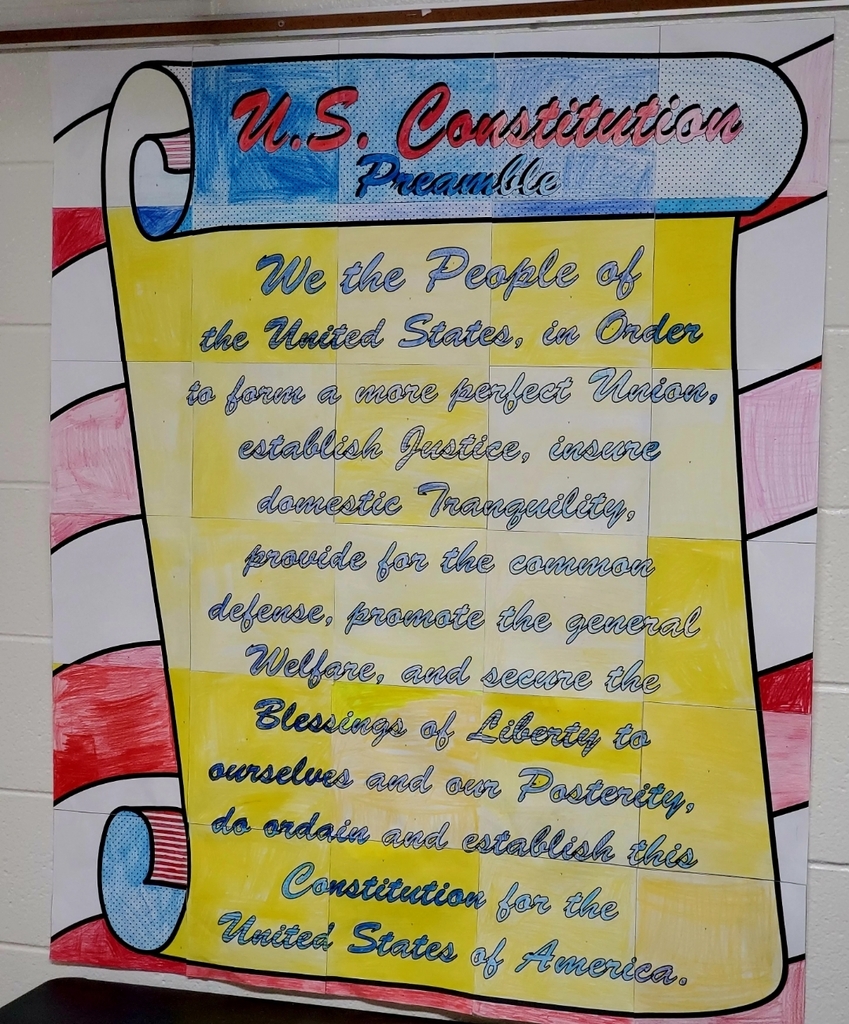 U.S. Constitution
Preamble
We the People of
the United States, in Order
to form a more perfect Union,
establish Justice, insure
domestic Tranquility,
provide for the common
defense, promote the general
Welfare, and secure the
Blessings of Liberty to
ourselves and our Posterity,
do ordain and establish this
Constitution for the
United States of America.